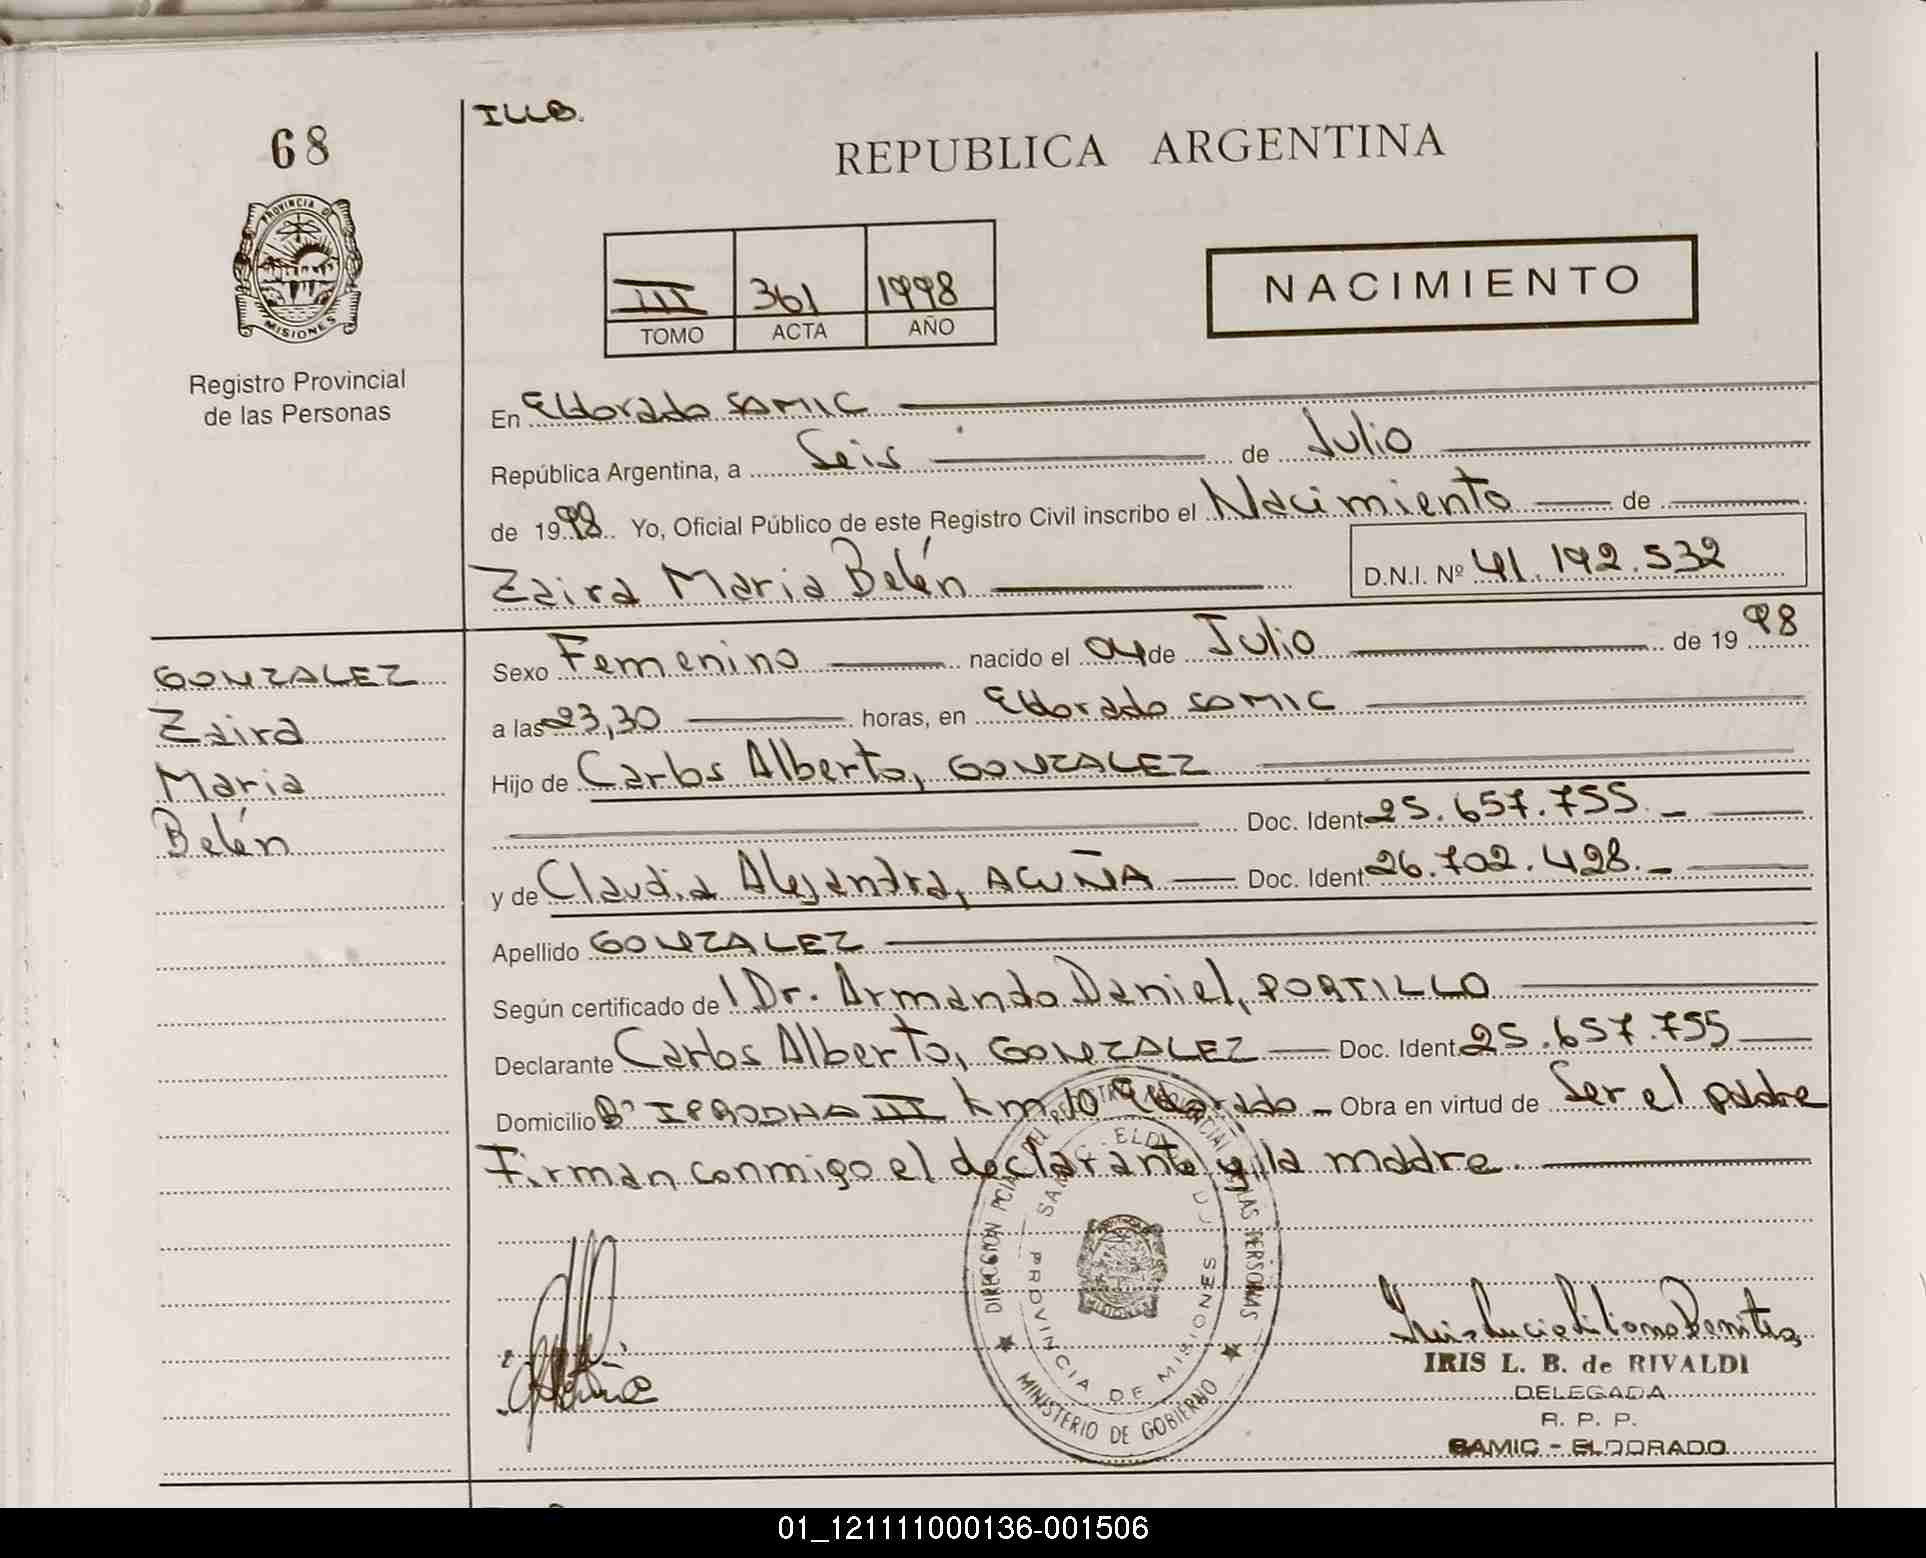 68
ILLB.
REPUBLICA ARGENTINA
PROVINCIA DE
MISIONES
Registro Provincial
de las Personas
III 361 1998
TOMO ACTA AÑO
NACIMIENTO
En Eldorado SAMIC
República Argentina, a Seis de Julio
de 1998 Yo, Oficial Público de este Registro Civil inscribo el Nacimiento de
Zaira Maria Belén D.N.I. Nº 41.192.532
GONZALEZ
Zaira
Maria
Belén
Sexo Femenino nacido el 04 de Julio de 1998
a las 23,30 horas, en Eldorado SAMIC
Hijo de Carlos Alberto, GONZALEZ
Doc. Ident. 25.657.755.-
y de Claudia Alejandra, ACUÑA Doc. Ident. 26.702.428.-
Apellido GONZALEZ
Según certificado de l Dr. Armando Daniel, PORTILLO
Declarante Carlos Alberto, GONZALEZ Doc. Ident. 25.657.755
Domicilio Bº IPRODHA III km 10 Eldorado - Obra en virtud de Ser el padre
Firman conmigo el declarante y la madre.
DIRECCION PCIAL DEL REGISTRO PROVINCIAL DE LAS PERSONAS
SAMIC - ELD
PROVINCIA DE MISIONES
MINISTERIO DE GOBIERNO
IRIS L. B. de RIVALDI
DELEGADA
R. P. P.
SAMIC - ELDORADO
01_121111000136-001506